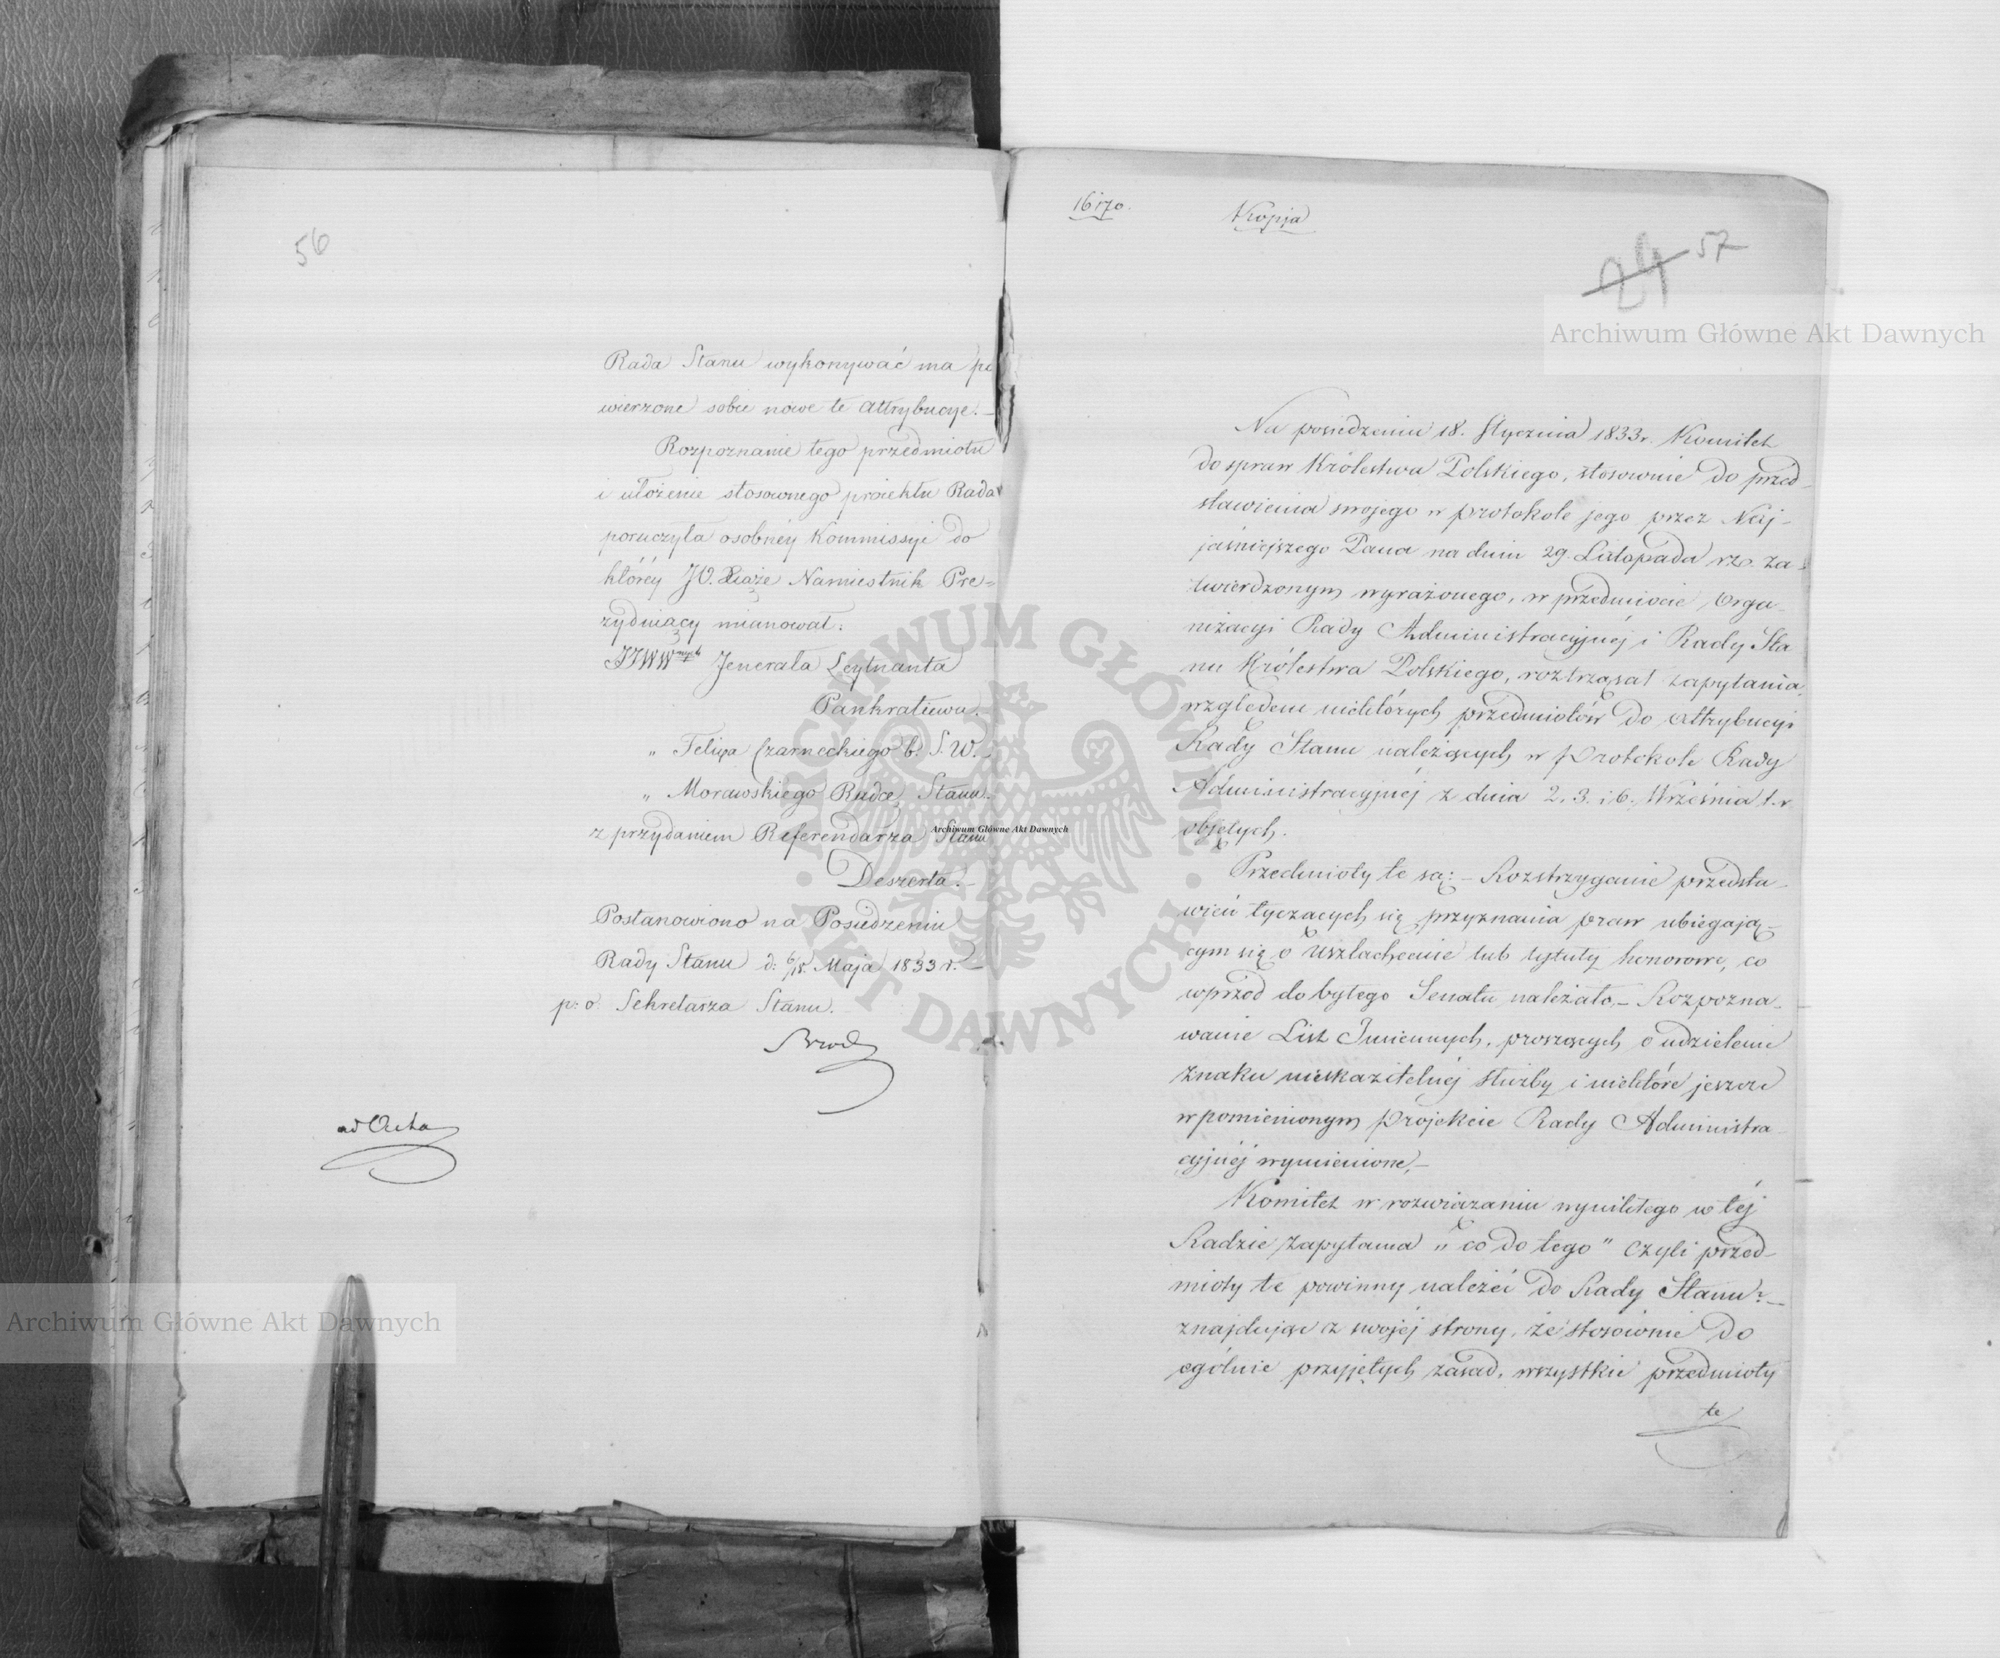 56
Rada Stanu wykonywać ma po
wierzone sobie nowe te attrybucye. –
Rozpoznanie tego przedmiotu
i ułożenie stosownego projektu Rada
poruczyła osobnéy Kommissyi do
któréy JO. Xiąże Namiestnik Pre=
zyduiący mianował:
JJWW Jenerała Leytnanta
Pankratiewa. –
„ Felixa Czarneckiego b. S. W. –
„ Morawskiego Radcę Stanu. –
z przydaniem Referendarza Stanu
Deszerta. –
Postanowiono na Posiedzeniu
Rady Stanu d: 6/18. Maja 1833 r. –
p: o. Sekretarza Stanu. –
ad Acta
16170.
Kopja
24 57
Na posiedzeniu 18. Stycznia 1833 r. Komitet
do spraw Królestwa Polskiego, stosownie do przed–
stawienia swojego w protokole jego przez Naj–
jaśniejszego Pana na dniu 29. Listopada rz. za–
twierdzonym wyrażonego, w przedmiocie Orga–
nizacyi Rady Administracyjnéj i Rady Sta
nu Królestwa Polskiego, roztrząsał zapytania
względem niektórych przedmiotów do Attrybucyi
Rady Stanu należących w Protokole Rady
Administracyjnéj z dnia 2. 3. i 6. Września t. r.
objętych.
Przedmioty te są: – Rozstrzyganie przedsta–
wień tyczących się przyznania praw ubiegają–
cym się o Uszlachcenie lub tytuły honorowe, co
wprzód do byłego Senatu należało, – Rozpozna–
wanie List Imiennych, proszących o udzielenie
Znaku nieskazitelnéj służby i niektóre jeszcze
w pomienionym Projekcie Rady Administra–
cyjnéj wymienione, –
Komitet w rozwiązaniu wynikłego w téj
Radzie zapytania „co do tego” czyli przed–
mioty te powinny należeć do Rady Stanu? –
znajdując z swojéj strony, że stosownie do
ogólnie przyjętych zasad, wszystkie przedmioty
te
Archiwum Główne Akt Dawnych
Archiwum Główne Akt Dawnych
Archiwum Główne Akt Dawnych
ARCHIWUM GŁÓWNE · AKT DAWNYCH ·